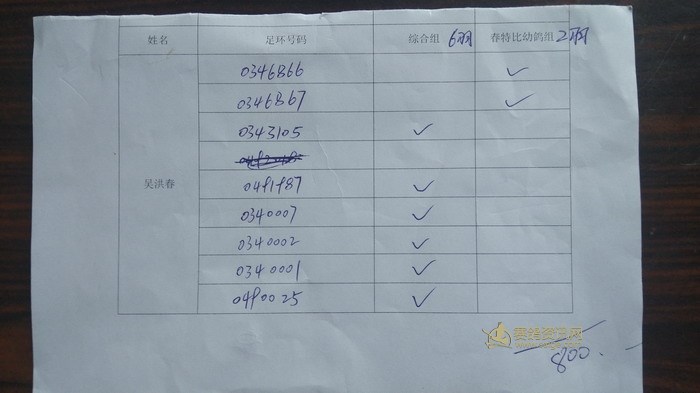 姓名 足环号码 综合组 6羽 春特比幼鸽组 2羽
0346866 ✓
0346867 ✓
0343105 ✓
吴洪春
✓
0340007 ✓
0340002 ✓
0340001 ✓
✓
赛鸽资讯网
800.-